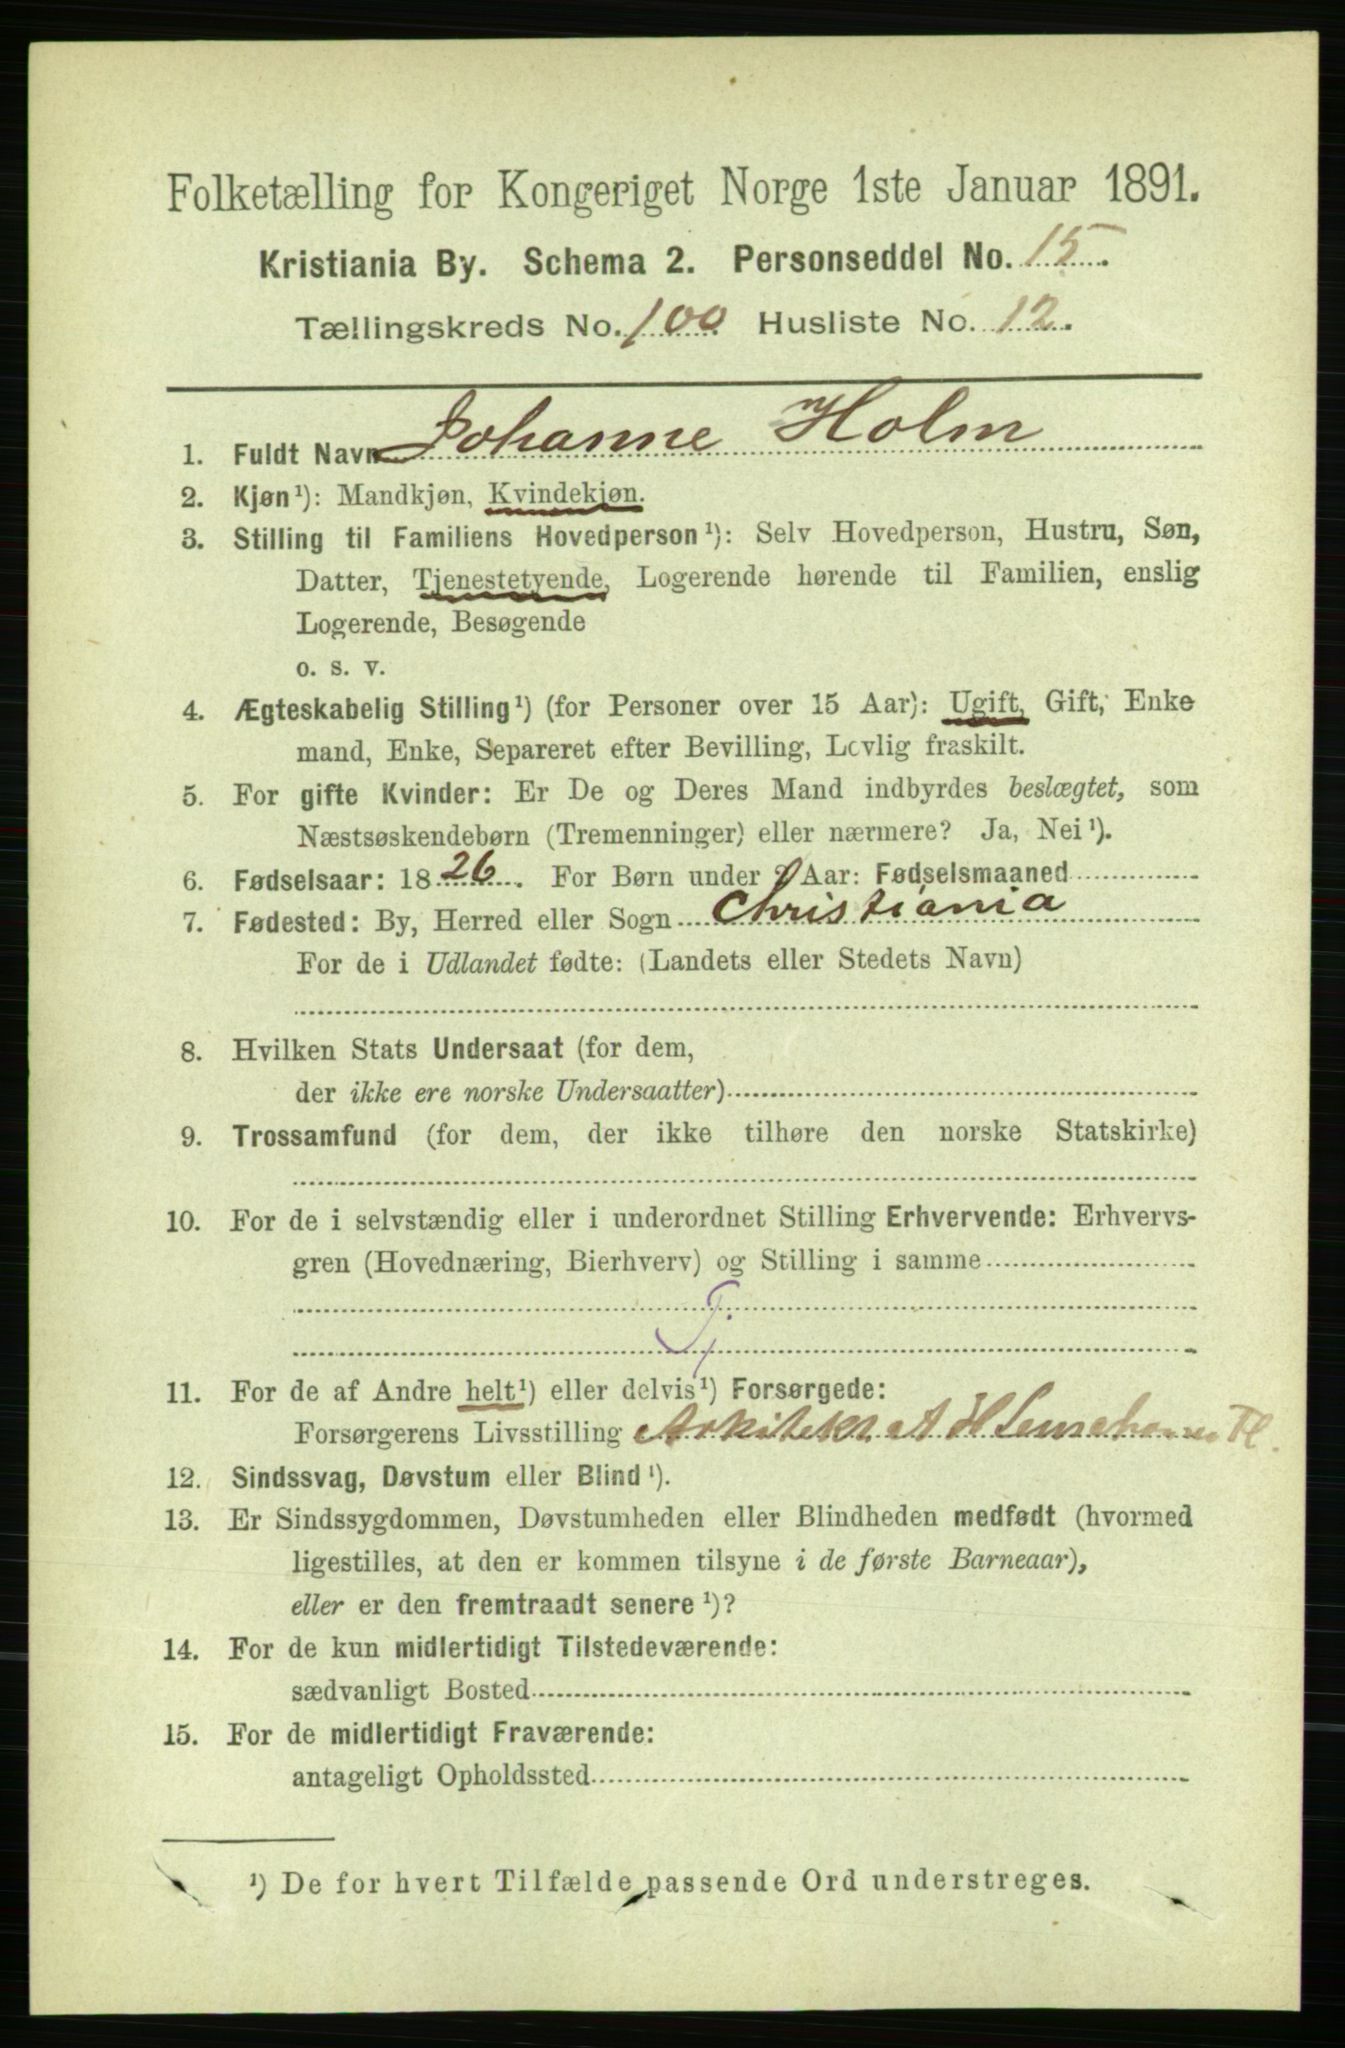 Folketælling for Kongeriget Norge 1ste Januar 1891.
Kristiania By. Schema 2. Personseddel No. 15.
Tællingskreds No. 100 Husliste No. 12.
1. Fuldt Navn Johanne Holm
2. Kjøn¹): Mandkjøn, Kvindekjøn.
3. Stilling til Familiens Hovedperson¹): Selv Hovedperson, Hustru, Søn,
Datter, Tjenestetyende, Logerende hørende til Familien, enslig
Logerende, Besøgende
o. s. v.
4. Ægteskabelig Stilling¹) (for Personer over 15 Aar): Ugift, Gift, Enke
mand, Enke, Separeret efter Bevilling, Lovlig fraskilt.
5. For gifte Kvinder: Er De og Deres Mand indbyrdes beslægtet, som
Næstsøskendebørn (Tremenninger) eller nærmere? Ja, Nei¹).
6. Fødselsaar: 1826. For Børn under 2 Aar: Fødselsmaaned
7. Fødested: By, Herred eller Sogn Christiania
For de i Udlandet fødte: (Landets eller Stedets Navn)
8. Hvilken Stats Undersaat (for dem,
der ikke ere norske Undersaatter)
9. Trossamfund (for dem, der ikke tilhøre den norske Statskirke)
10. For de i selvstændig eller i underordnet Stilling Erhvervende: Erhvervs-
gren (Hovednæring, Bierhverv) og Stilling i samme
Tj
11. For de af Andre helt¹) eller delvis¹) Forsørgede:
Forsørgerens Livsstilling Arkitekt A H
12. Sindssvag, Døvstum eller Blind¹).
13. Er Sindssygdommen, Døvstumheden eller Blindheden medfødt (hvormed
ligestilles, at den er kommen tilsyne i de første Barneaar),
eller er den fremtraadt senere¹)?
14. For de kun midlertidigt Tilstedeværende:
sædvanligt Bosted
15. For de midlertidigt Fraværende:
antageligt Opholdssted
¹) De for hvert Tilfælde passende Ord understreges.